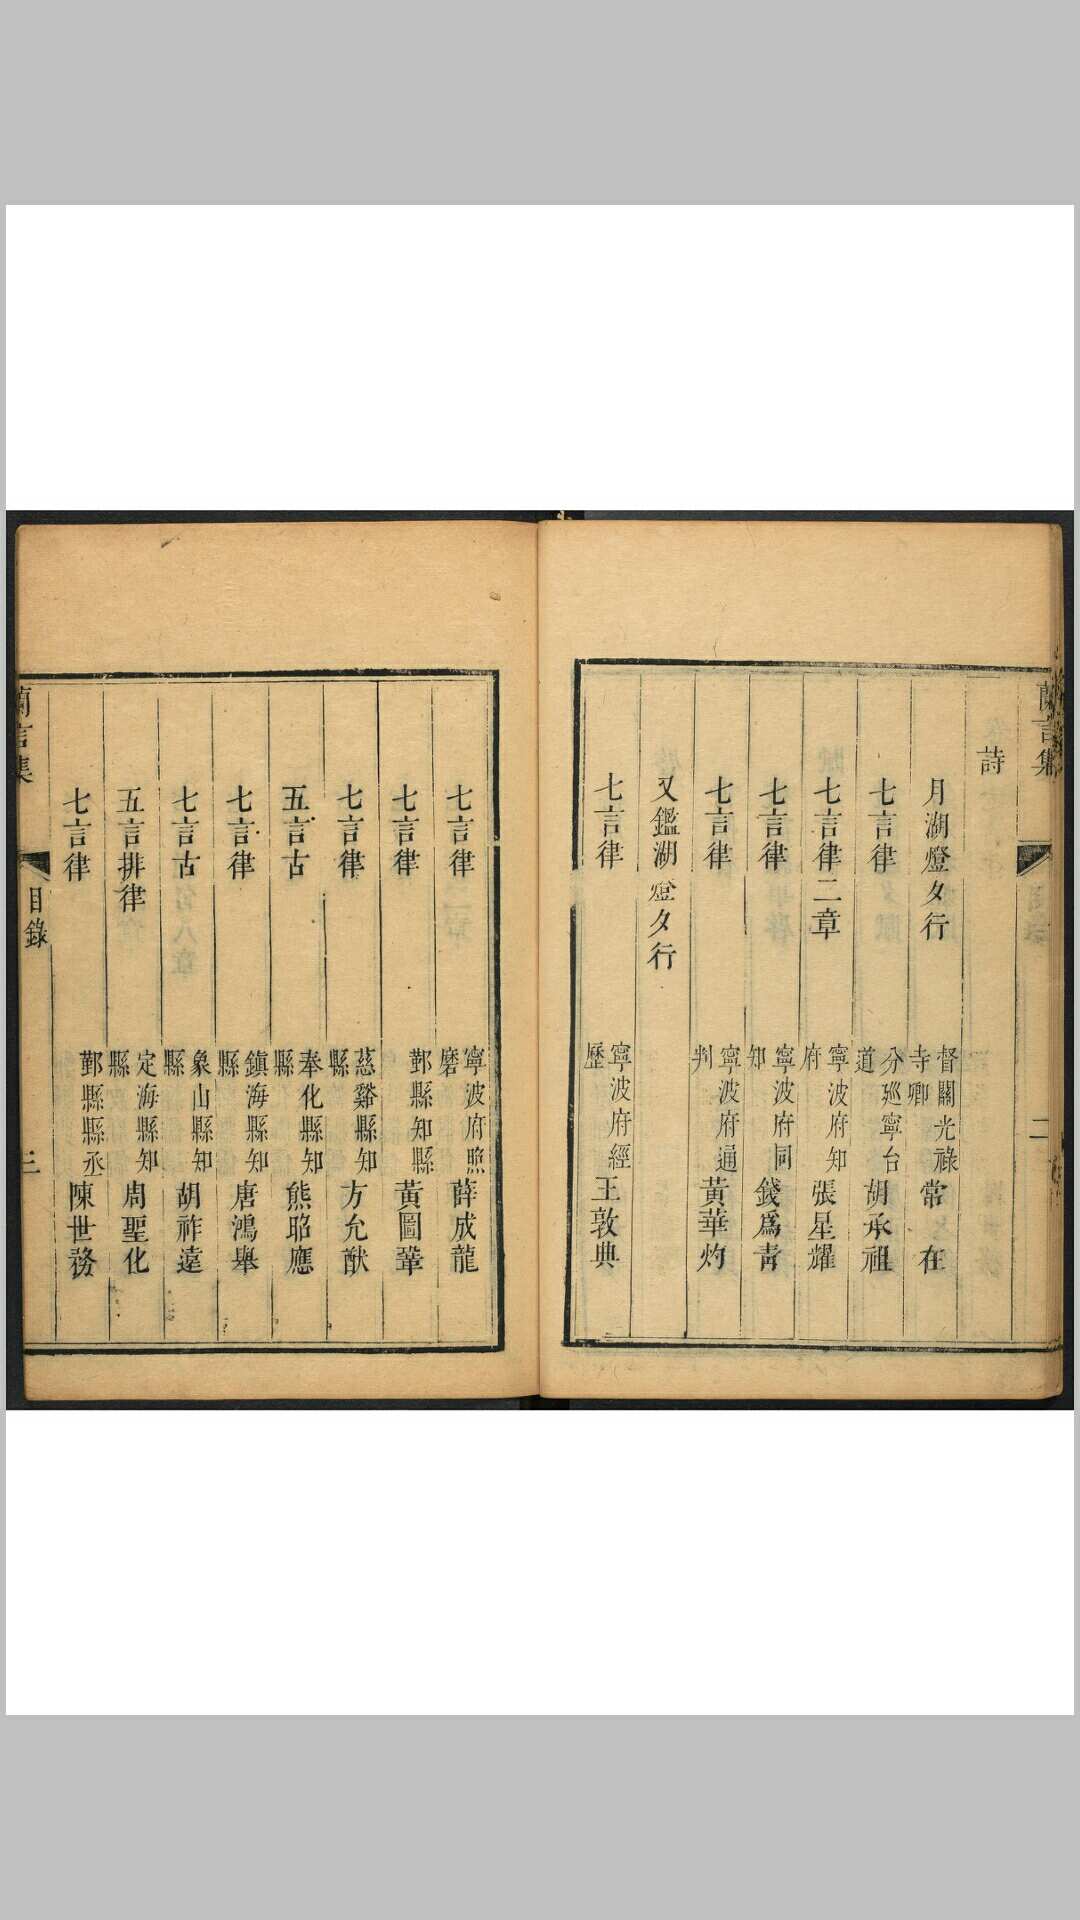 蘭言集
二
詩
月湖燈夕行 督關光祿寺卿 常在
七言律 分廵寧台道 胡承祖
七言律二章 寧波府知府 張星耀
七言律 寧波府同知 錢爲青
七言律 寧波府通判 黃華灼
又鑑湖燈夕行
七言律 寧波府經歷 王敦典
七言律 寧波府照磨 薛成龍
七言律 鄞縣知縣 黃圖鞏
七言律 慈谿縣知縣 方允猷
五言古 奉化縣知縣 熊昭應
七言律 鎮海縣知縣 唐鴻舉
七言古 象山縣知縣 胡祚遠
五言排律 定海縣知縣 周聖化
七言律 鄞縣縣丞 陳世務
蘭言集 目錄 三